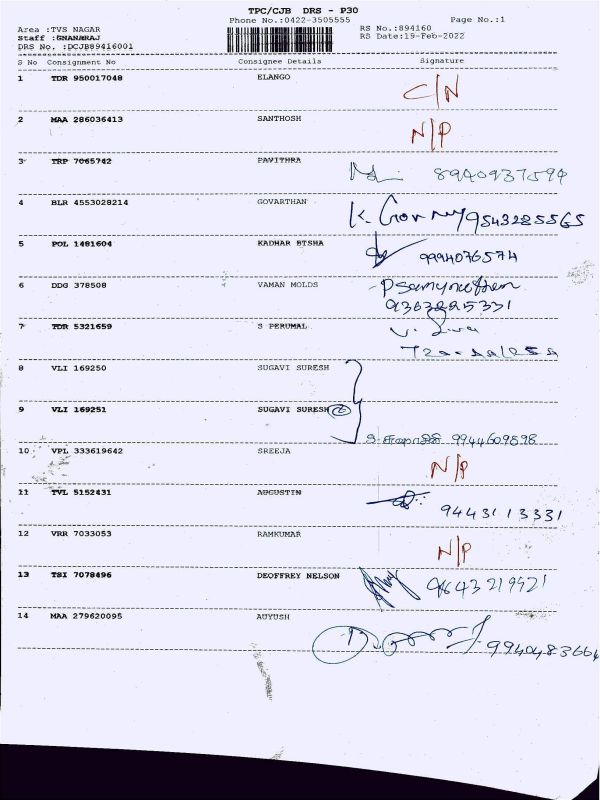 TPC/CJB DRS - P30
Phone No.:0422-3505555 Page No.:1
Area :TVS NAGAR RS No.:894160
Staff :GNANARAJ RS Date:19-Feb-2022
DRS No. :DCJB89416001
S No Consignment No Consignee Details Signature
1 TDR 950017048 ELANGO C/N
2 MAA 286036413 SANTHOSH N/P
3 TRP 7065742 PAVITHRA 8940937594
4 BLR 4553028214 GOVARTHAN K. Gov 9543285565
5 POL 1481604 KADHAR BTSHA 9994076574
6 DDG 378508 VAMAN MOLDS
9363225331
7 TDR 5321659 S PERUMAL
8 VLI 169250 SUGAVI SURESH
9 VLI 169251 SUGAVI SURESH 2
9944609898
10 VPL 333619642 SREEJA N/P
11 TVL 5152431 AUGUSTIN
9443113331
12 VRR 7033053 RAMKUMAR N/P
13 TSI 7078496 DEOFFREY NELSON 9643219921
14 MAA 279620095 AUYUSH
9940483664